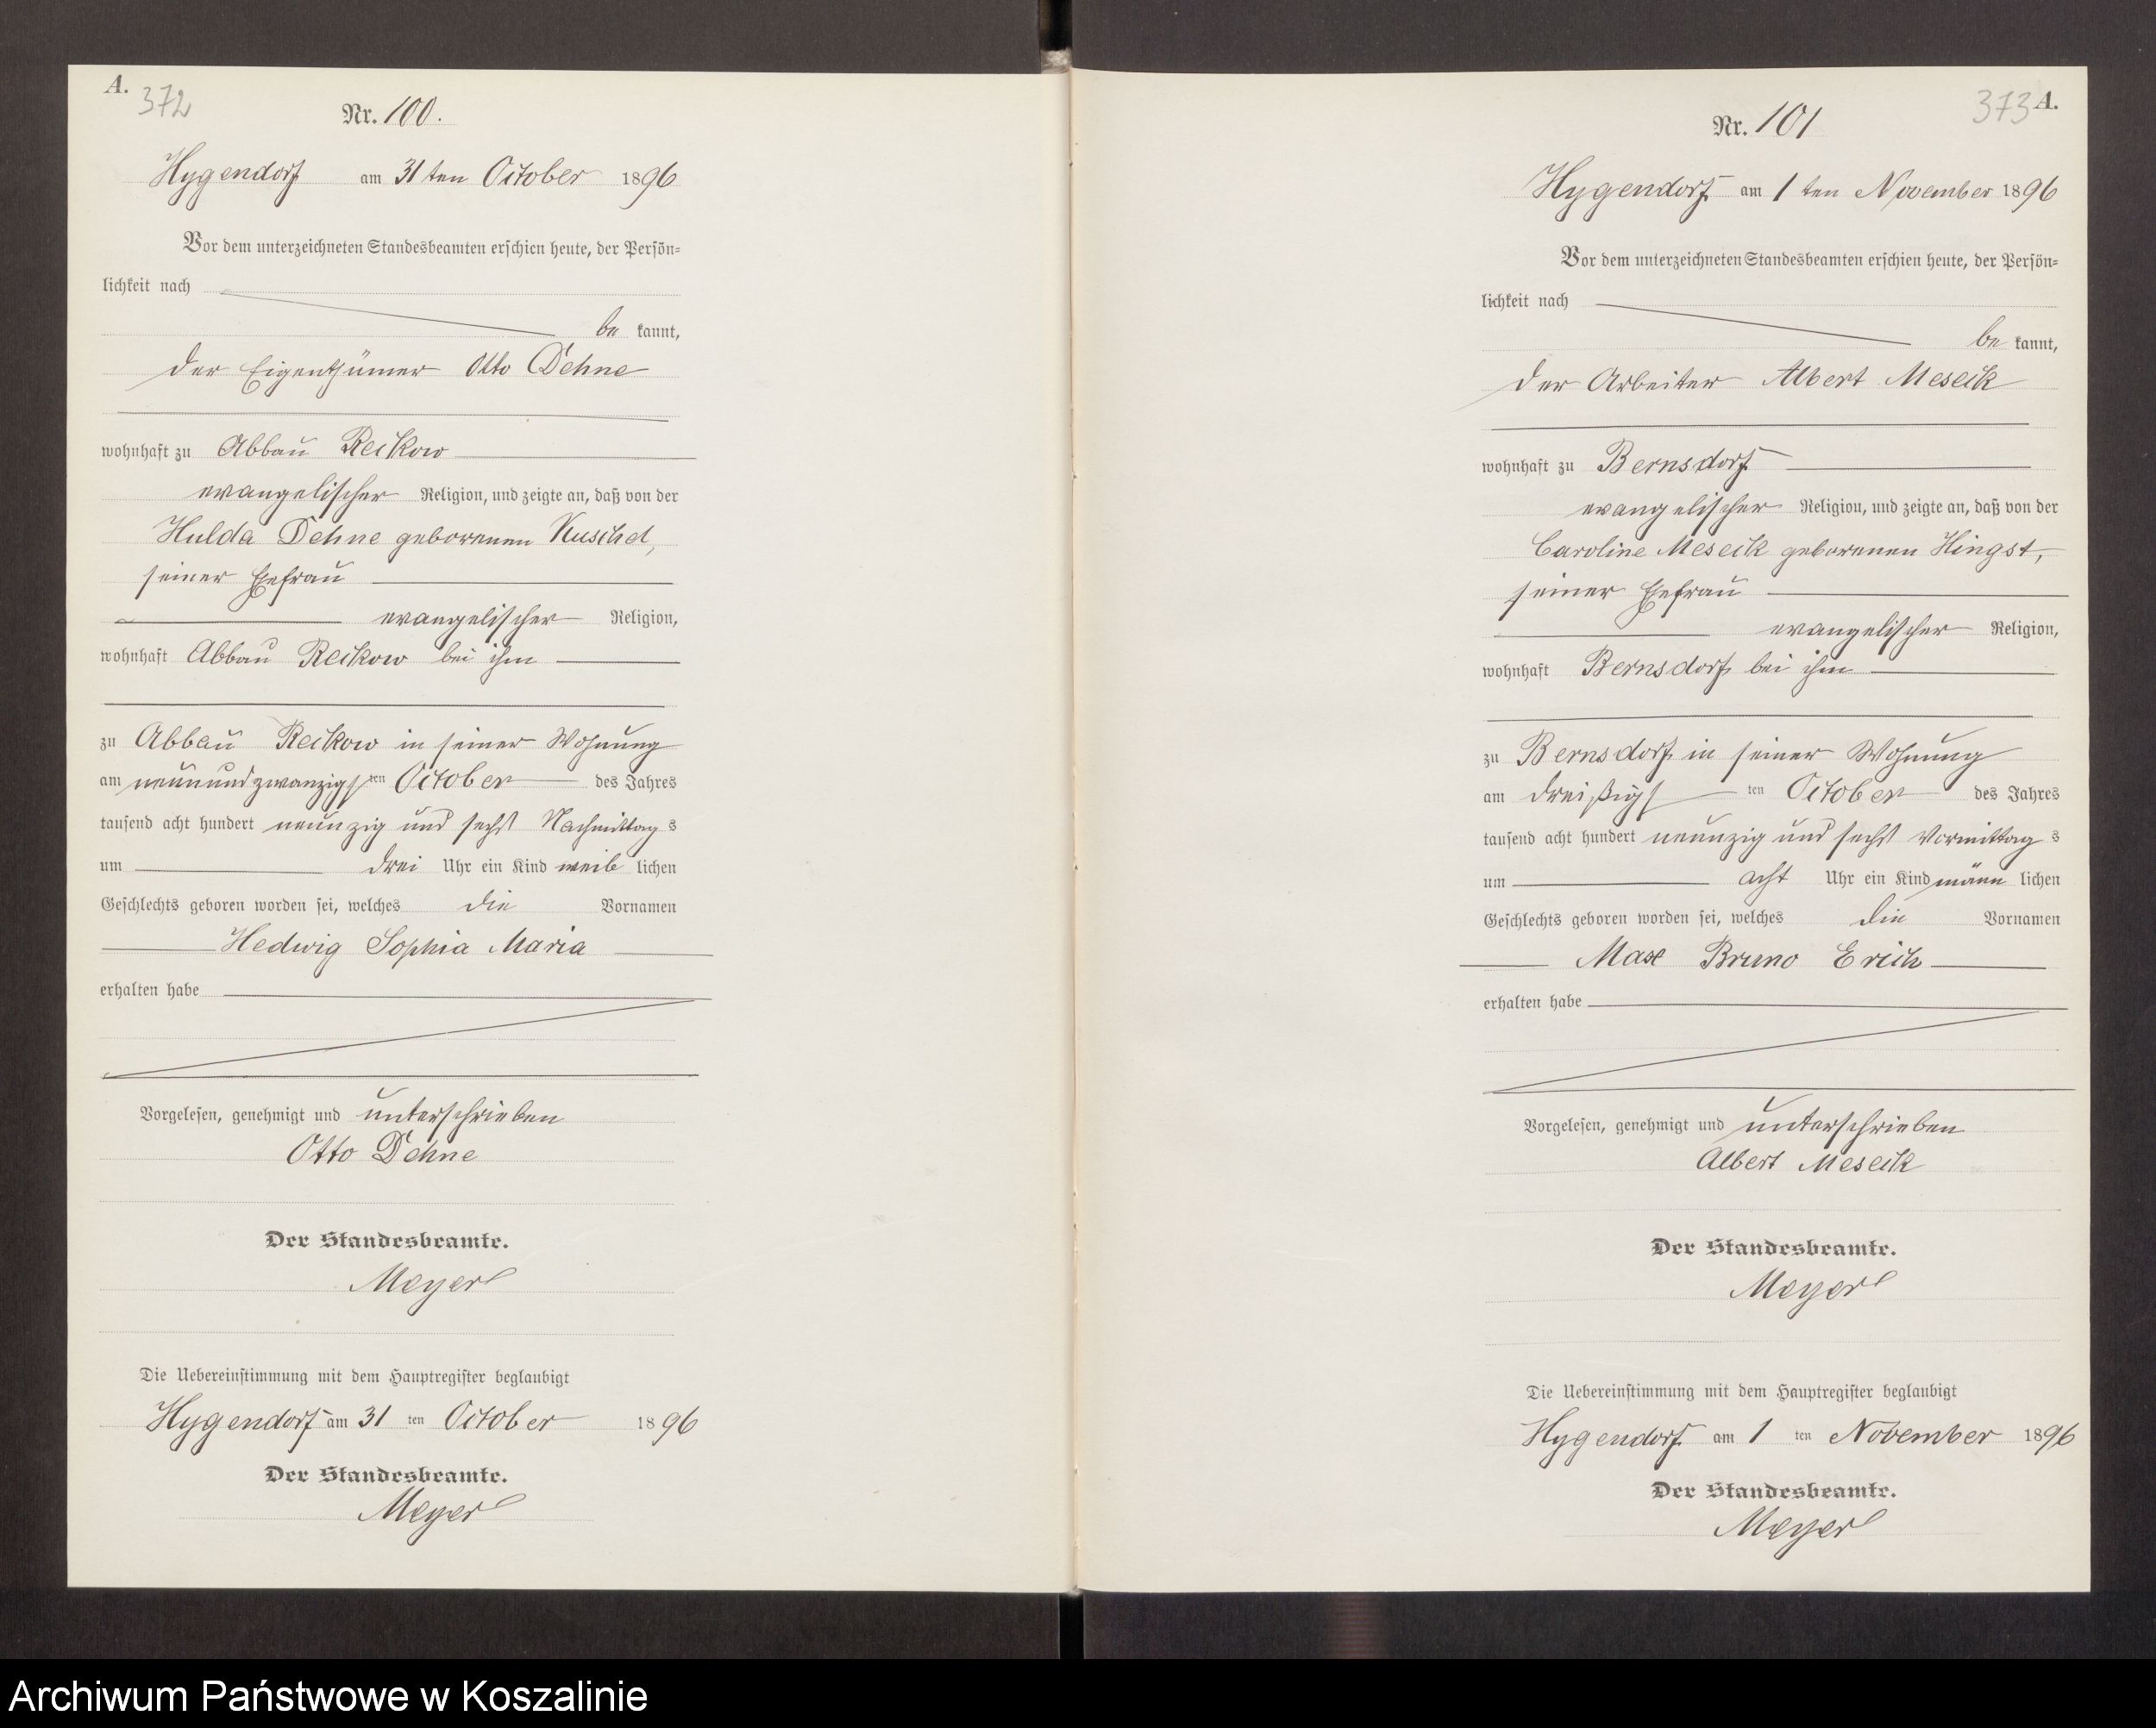 A.
372
Nr. 100.
Hygendorf am 31 ten October 1896
Vor dem unterzeichneten Standesbeamten erschien heute, der Persön=
lichkeit nach
be kannt,
der Eigenthümer Otto Dehne
wohnhaft zu Abbau Reikow
evangelischer Religion, und zeigte an, daß von der
Hulda Dehne geborenen Kuschel,
seiner Ehefrau
evangelischer Religion,
wohnhaft Abbau Reikow bei ihm
zu Abbau Reikow in seiner Wohnung
am neunundzwanzigsten October des Jahres
tausend acht hundert neunzig und sechs Nachmittags
um drei Uhr ein Kind weib lichen
Geschlechts geboren worden sei, welches die Vornamen
Hedwig Sophia Maria
erhalten habe
Vorgelesen, genehmigt und unterschrieben
Otto Dehne
Der Standesbeamte.
Meyer
Die Uebereinstimmung mit dem Hauptregister beglaubigt
Hygendorf am 31 ten October 1896
Der Standesbeamte.
Meyer
373 A.
Nr. 101
Hygendorf am 1 ten November 1896
Vor dem unterzeichneten Standesbeamten erschien heute, der Persön=
lichkeit nach
be kannt,
der Arbeiter Albert Meseck
wohnhaft zu Bernsdorf
evangelischer Religion, und zeigte an, daß von der
Caroline Meseck geborenen Hingst,
seiner Ehefrau
evangelischer Religion,
wohnhaft Bernsdorf bei ihm
zu Bernsdorf in seiner Wohnung
am dreißigs ten October des Jahres
tausend acht hundert neunzig und sechs Vormittag s
um acht Uhr ein Kind männ lichen
Geschlechts geboren worden sei, welches die Vornamen
Max Bruno Erich
erhalten habe
Vorgelesen, genehmigt und unterschrieben
Albert Meseck
Der Standesbeamte.
Meyer
Die Uebereinstimmung mit dem Hauptregister beglaubigt
Hygendorf am 1 ten November 1896
Der Standesbeamte.
Meyer
Archiwum Państwowe w Koszalinie